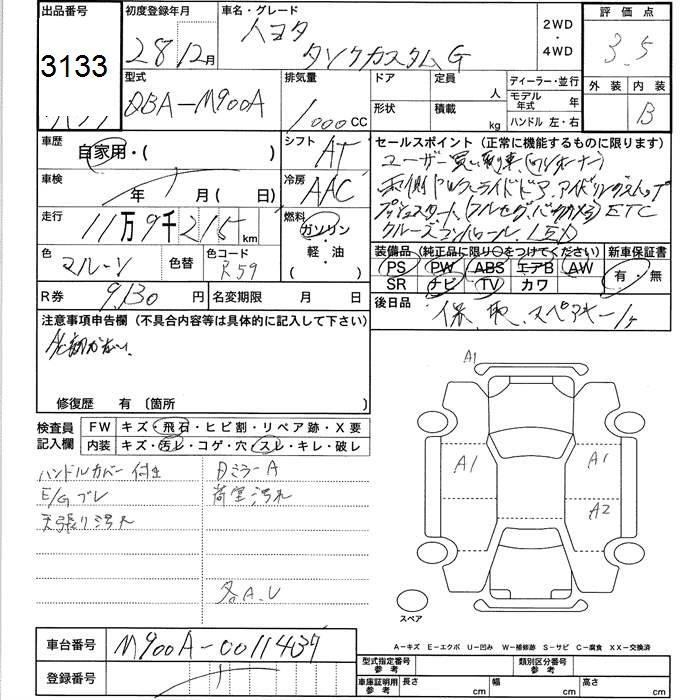 出品番号 初度登録年月 車名・グレード 2WD ・ 4WD 評価点
3133 28 12月 トヨタ タンクカスタムG 3.5
外装 内装
B
型式 排気量 ドア 定員 人 ディーラー・並行
DBA-M900A 1,000CC 形状 積載 kg モデル年式 年
ハンドル 左・右
車歴 自家用・( ) シフト AT セールスポイント (正常に機能するものに限ります)
ユーザー買い取車(ワンオーナー)
車検 年 月( 日) 冷房 AAC 両側パワースライドドア、アイドリングストップ
プッシュスタート(フルセグ、バックカメラ)ETC
走行 11万9千215km 燃料 ガソリン・軽・油( ) クルーズコントロール、LED
色 マルーン 色替 色コード R59
装備品 (純正品に限り○をつけてください) 新車保証書
PS PW ABS エアB AW 有・無
SR ナビ TV カワ
R券 9,130円 名変期限 月 日 後日品
保、取、スペアキー1ヶ
注意事項申告欄 (不具合内容等は具体的に記入して下さい)
修復歴 有 〔箇所 〕
検査員記入欄 FW キズ・飛石・ヒビ割・リペア跡・X要
内装 キズ・汚レ・コゲ・穴・スレ・キレ・破レ
ハンドルカバー付き Dミラー A
E/Gブレ 荷室汚れ
天張り汚れ
各A.U
A1
A1 A1
A2
スペア
車台番号 M900A-0011437
A-キズ E-エクボ U-凹み W-補修跡 S-サビ C-腐食 XX-交換済
登録番号
型式指定番号 参考 類別区分番号 参考
車庫証明用 参考 長さ cm 幅 cm 高さ cm